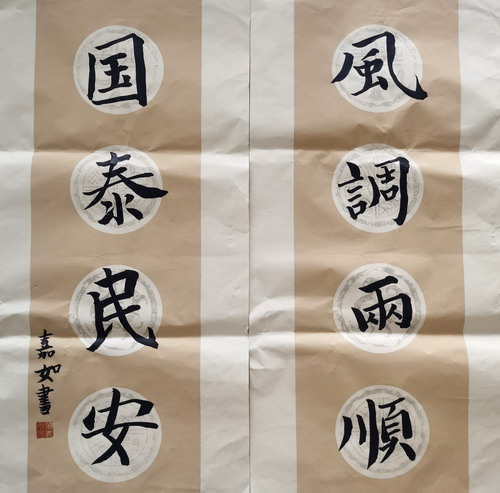 風調雨順
国泰民安
嘉如書